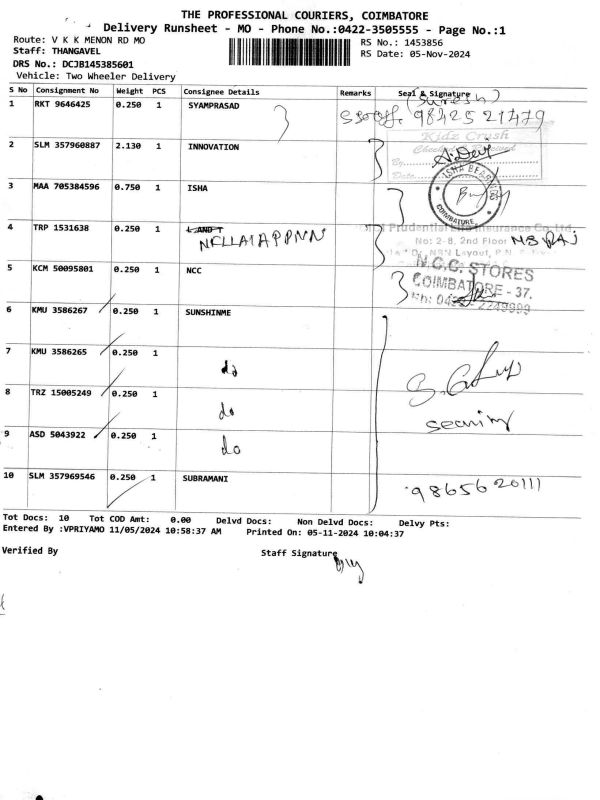 THE PROFESSIONAL COURIERS, COIMBATORE
Delivery Runsheet - MO - Phone No.:0422-3505555 - Page No.:1
Route: V K K MENON RD MO
RS No.: 1453856
Staff: THANGAVEL
RS Date: 05-Nov-2024
DRS No.: DCJB145385601
Vehicle: Two Wheeler Delivery
S No Consignment No Weight PCS Consignee Details Remarks Seal & Signature
(Suresh)
1 RKT 9646425 0.250 1 SYAMPRASAD
98425 21479
Kidz Crush
2 SLM 357960887 2.130 1 INNOVATION
A. Devi
By
Date
3 MAA 705384596 0.750 1 ISHA
ISHA
COIMBATORE
4 TRP 1531638 0.250 1 L AND T
Prudential Insurance Co Ltd
NELLAIAPPNN
No: 2-8, 2nd Floor
Layout, P.N.
5 KCM 50095801 0.250 1 NCC
N.C.C. STORES
COIMBATORE - 37.
6 KMU 3586267 0.250 1 SUNSHINME
7 KMU 3586265 0.250 1 do
8 TRZ 15005249 0.250 1 do
9 ASD 5043922 0.250 1 do
10 SLM 357969546 0.250 1 SUBRAMANI
9865620111
Tot Docs: 10 Tot COD Amt: 0.00 Delvd Docs: Non Delvd Docs: Delvy Pts:
Entered By :VPRIYAMO 11/05/2024 10:58:37 AM Printed On: 05-11-2024 10:04:37
Verified By Staff Signature